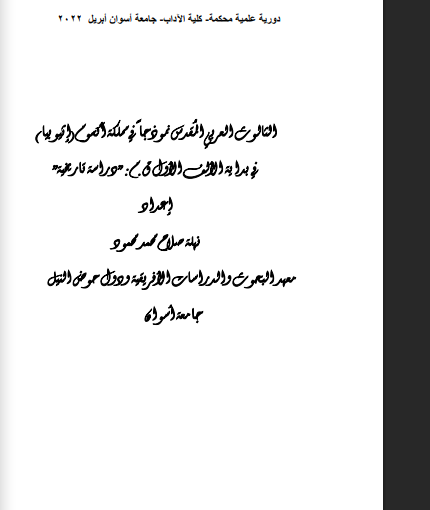 دورية علمية محكمة- كلية الآداب- جامعة أسوان أبريل ٢٠٢٢
الثالوث العربي المقدس نموذجاً في مملكة أكسوم (إثيوبيا)
في بداية الألف الأول ق.م: "دراسة تاريخية"
إعداد
نهلة صلاح محمد محمود
معهد البحوث والدراسات الأفريقية ودول حوض النيل
جامعة أسوان